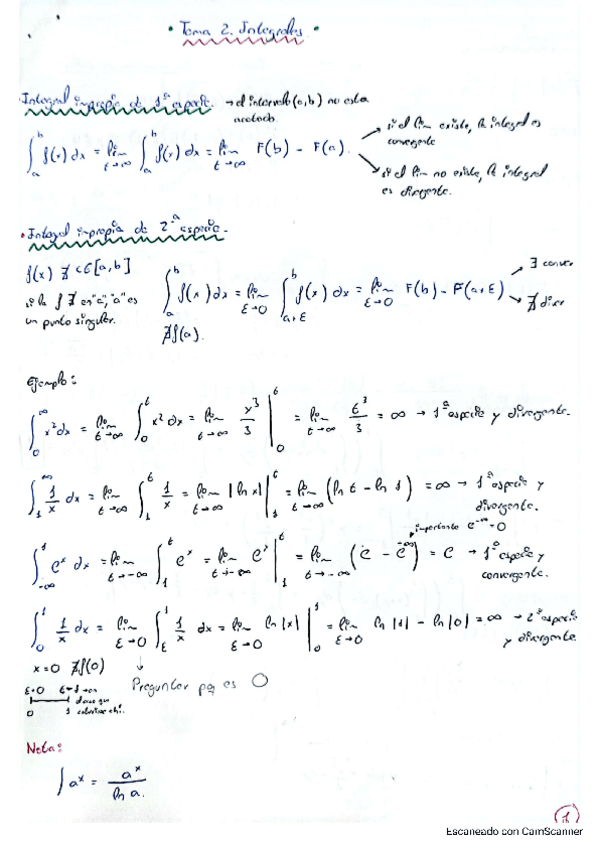 • Tema 2. Integrales •
Integral impropia de 1ª especie. → el intervalo (a,b) no esta
acotado.
∫_a^b f(x) dx = lim_{t→∞} ∫_a^b f(x) dx = lim_{t→∞} F(b) - F(a).
si el lim existe, la integral es
convergente
si el lim no existe, la integral
es divergente.
• Integral impropia de 2ª especie.
f(x) ∄ c∈[a,b]
si la f ∄ en "a", "a" es
un punto singular.
∫_a^b f(x) dx = lim_{ε→0} ∫_{a+ε}^b f(x) dx = lim_{ε→0} F(b) - F(a+ε)
∃ conver
∄ diver
∄f(a).
Ejemplo:
∫_0^∞ x² dx = lim_{t→∞} ∫_0^t x² dx = lim_{t→∞} x³/3 |_0^t = lim_{t→∞} t³/3 = ∞ → 1ª especie y divergente.
∫_1^∞ 1/x dx = lim_{t→∞} ∫_1^t 1/x = lim_{t→∞} |ln x| |_1^t = lim_{t→∞} (ln t - ln 1) = ∞ → 1ª especie y
divergente.
importante e^{-∞}=0
∫_{-∞}^1 e^x dx = lim_{t→-∞} ∫_1^t e^x = lim_{t→-∞} e^x |_1^t = lim_{t→-∞} (e - e^{-∞}) = e → 1ª especie y
convergente.
∫_0^1 1/x dx = lim_{ε→0} ∫_ε^1 1/x dx = lim_{ε→0} ln|x| |_0^1 = lim_{ε→0} ln|1| - ln|0| = ∞ → 2ª especie
y divergente.
x=0 ∄f(0)
Preguntar pq es 0
0 1
Nota:
∫ a^x = a^x / ln a.
1
Escaneado con CamScanner